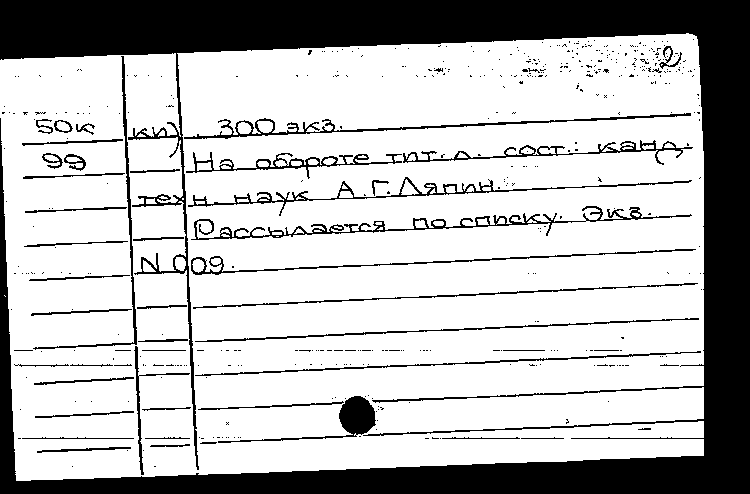 2
50к ки) . 300 экз.
99 На обороте тит. л. сост.: канд.
техн. наук А.Г. Ляпин.
Рассылается по списку. Экз.
N 009.